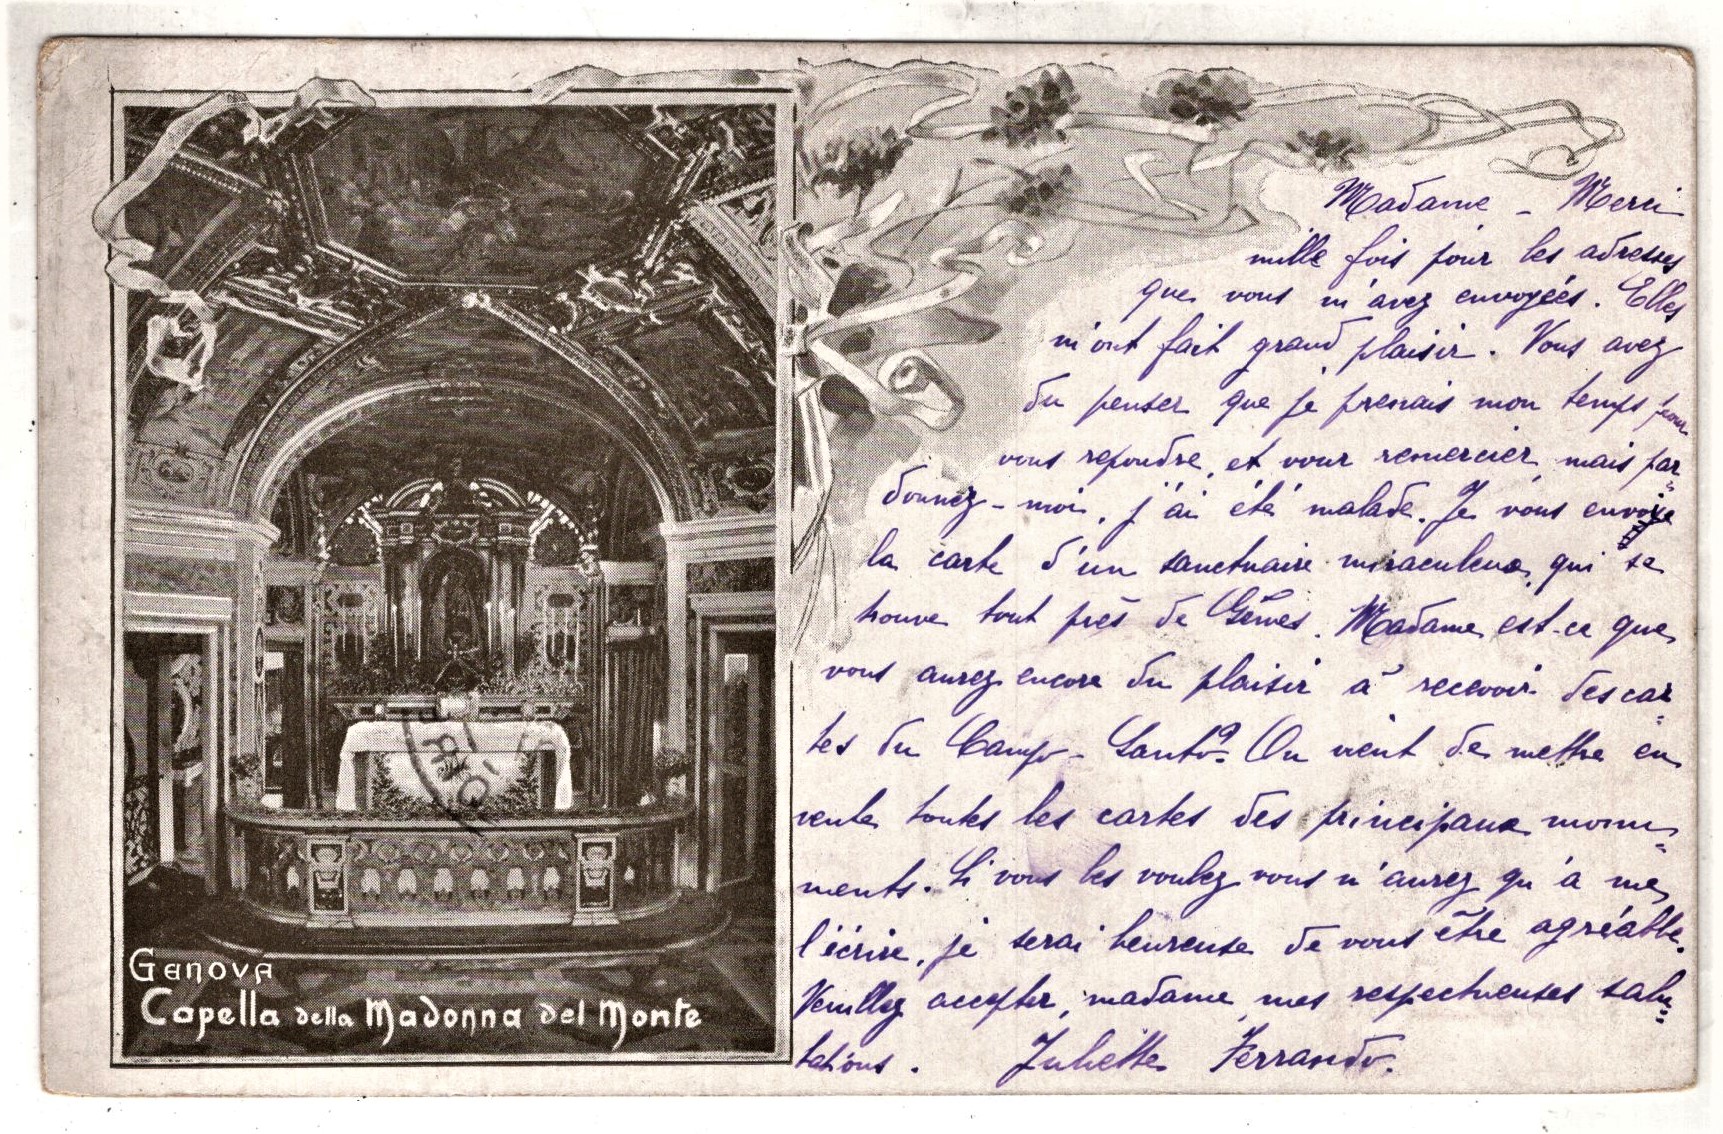 Genova
Capella della Madonna del Monte
Madame - Merci
mille fois pour les adresses
que vous m'avez envoyées. Elles
m'ont fait grand plaisir. Vous avez
du penser que je prenais mon temps pour
vous repondre, et vour remercier, mais par=
donnez-moi, j'ai été malade. Je vous envoie
la carte d'un sanctuaire miraculeux, qui se
trouve tout près de Gênes. Madame est-ce que
vous aurez encore du plaisir à recevoir des car=
tes du Campo-Santo? On vient de mettre en
vente toutes les cartes des principaux monu=
ments. Si vous les voulez vous n'aurez qu'à me
l'écrire, je serai heureuse de vous être agréable.
Veuillez accepter, madame, mes respectueuses salu=
tations. Juliette Ferrando.